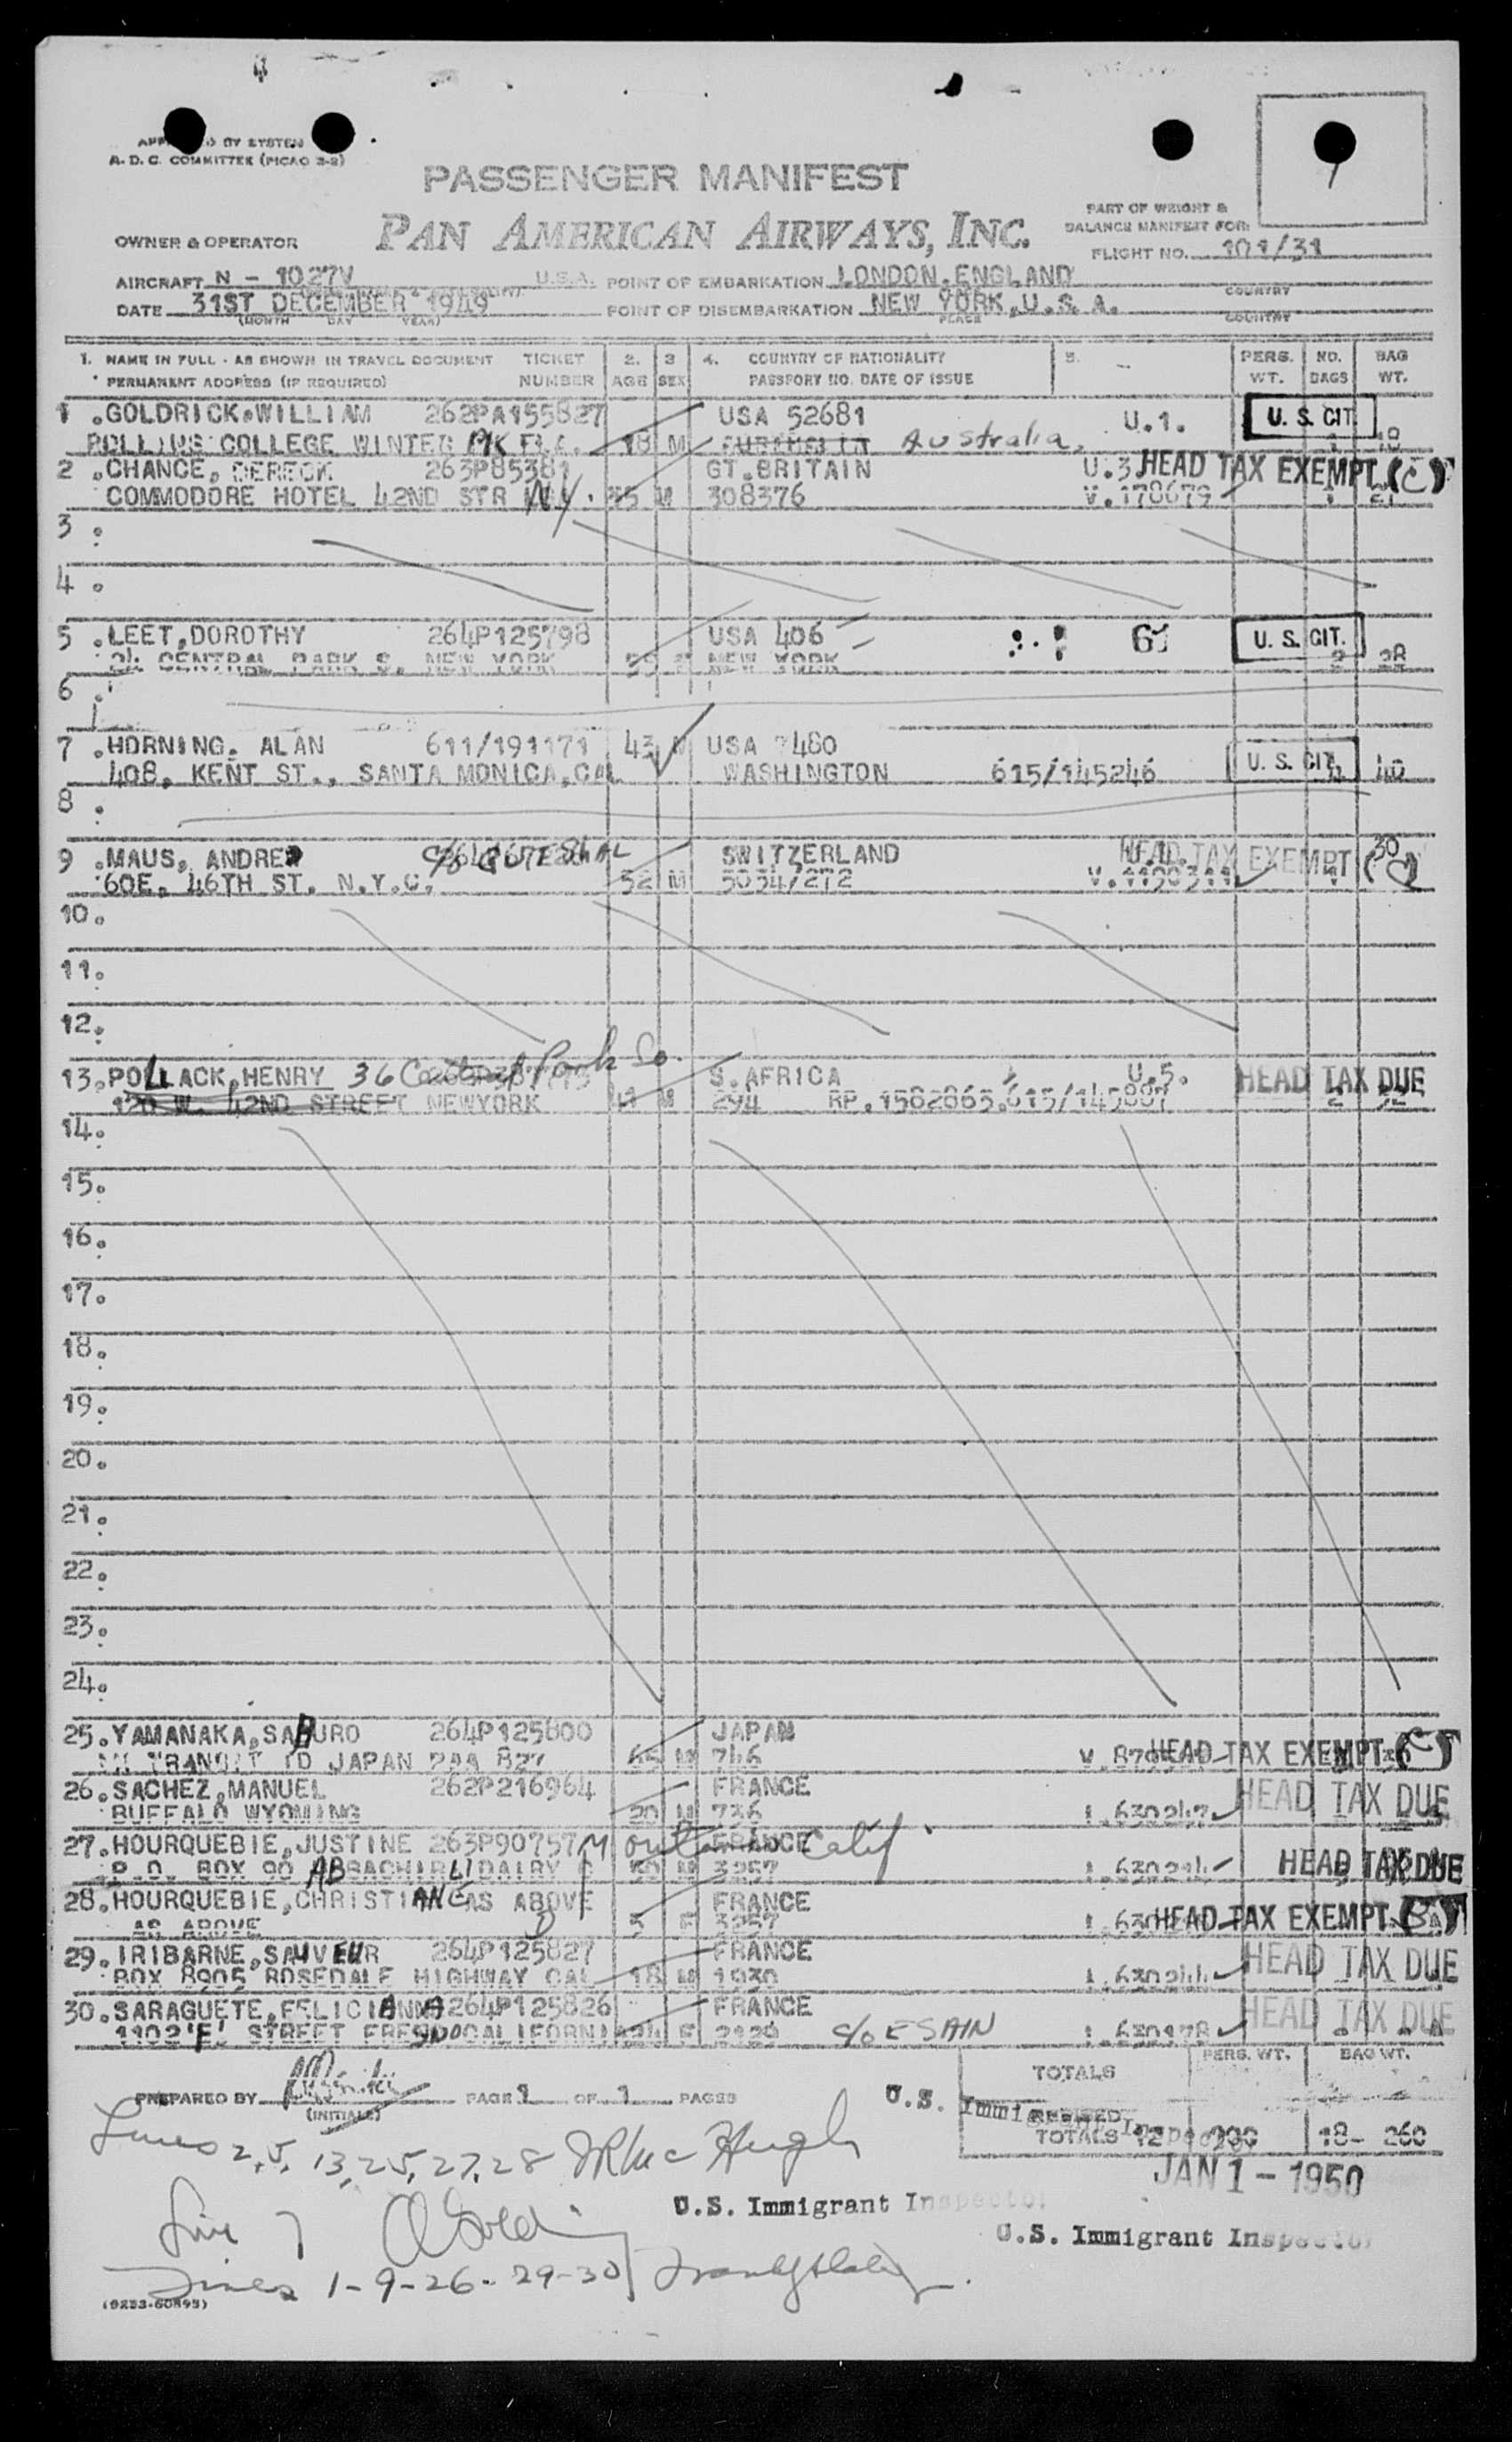 BY SYSTEM
A. D. C. COMMITTEE (PICAO 2-2)
PASSENGER MANIFEST
PAN AMERICAN AIRWAYS, INC.
PART OF WEIGHT &
BALANCE MANIFEST FOR:
FLIGHT NO. 101/31
OWNER & OPERATOR
AIRCRAFT N - 1027V U.S.A. POINT OF EMBARKATION LONDON, ENGLAND
COUNTRY
DATE 31ST DECEMBER 1949 POINT OF DISEMBARKATION NEW YORK, U.S.A.
(MONTH DAY YEAR) PLACE COUNTRY
1. NAME IN FULL - AS SHOWN IN TRAVEL DOCUMENT TICKET 2. 3 4. COUNTRY OF NATIONALITY 5. PERS. NO. BAG
* PERMANENT ADDRESS (IF REQUIRED) NUMBER AGE SEX PASSPORT NO. DATE OF ISSUE WT. BAGS WT.
1 .GOLDRICK.WILLIAM 262PA155827 USA 52681 U.1. U. S. CIT.
ROLLINS COLLEGE WINTER PK FLA. 18 M Australia.
2 .CHANCE, DERECK 263P85381 GT.BRITAIN U.3 HEAD TAX EXEMPT (C)
COMMODORE HOTEL 42ND STR NY. 35 M 308376 V.178679 1 21
3 .
4 .
5 .LEET,DOROTHY 264P125798 USA 406 U. S. CIT.
CENTRAL PARK S. NEW YORK 55 F NEW YORK 2 28
6 .
7 .HORNING. ALAN 611/191171 43 M USA 7480 U. S. CIT.
408, KENT ST., SANTA MONICA,CAL WASHINGTON 615/145246 40
8 .
9 .MAUS, ANDRE SWITZERLAND HEAD TAX EXEMPT 30
60E. 46TH ST. N.Y.C. 32 M (C)
10.
11.
12.
13.POLLACK,HENRY 36 Central Park So. S.AFRICA U.5. HEAD TAX DUE
120 W. 42ND STREET NEWYORK 41 M 294 RP.1582865.615/145887 2 32
14.
15.
16.
17.
18.
19.
20.
21.
22.
23.
24.
25.YAMANAKA,SABURO 264P125800 JAPAN
IN TRANSIT TO JAPAN PAA 827 65 M 746 HEAD TAX EXEMPT (C)
26.SACHEZ,MANUEL 262P216964 FRANCE HEAD TAX DUE
BUFFALO WYOMING 20 M 736 1.630247
27.HOURQUEBIE,JUSTINE 263P90757 FRANCE Calif. HEAD TAX DUE
P.O. BOX 90 DAIRY 3257
28.HOURQUEBIE,CHRISTIANE AS ABOVE FRANCE HEAD TAX EXEMPT
AS ABOVE 5 F 3257
29.IRIBARNE,SAUVEUR 264P125827 FRANCE HEAD TAX DUE
BOX 8905 ROSEDALE HIGHWAY CAL 18 M 1930 1.630244
30.SARAGUETE,FELICIANNA 264P125826 FRANCE HEAD TAX DUE
1102 'F' STREET FRESNO CALIFORNI 24 F 2129 c/o ESAIN 1.630178
PERS. WT. BAG WT.
TOTALS
PREPARED BY (INITIALS) PAGE 1 OF 1 PAGES
U.S. Immigrant Inspector
TOTALS 12 18- 260
Lines 2, 5, 13, 25, 27, 28 McHugh
JAN 1 - 1950
U.S. Immigrant Inspector
Line 7
U.S. Immigrant Inspector
Lines 1-9-26-29-30